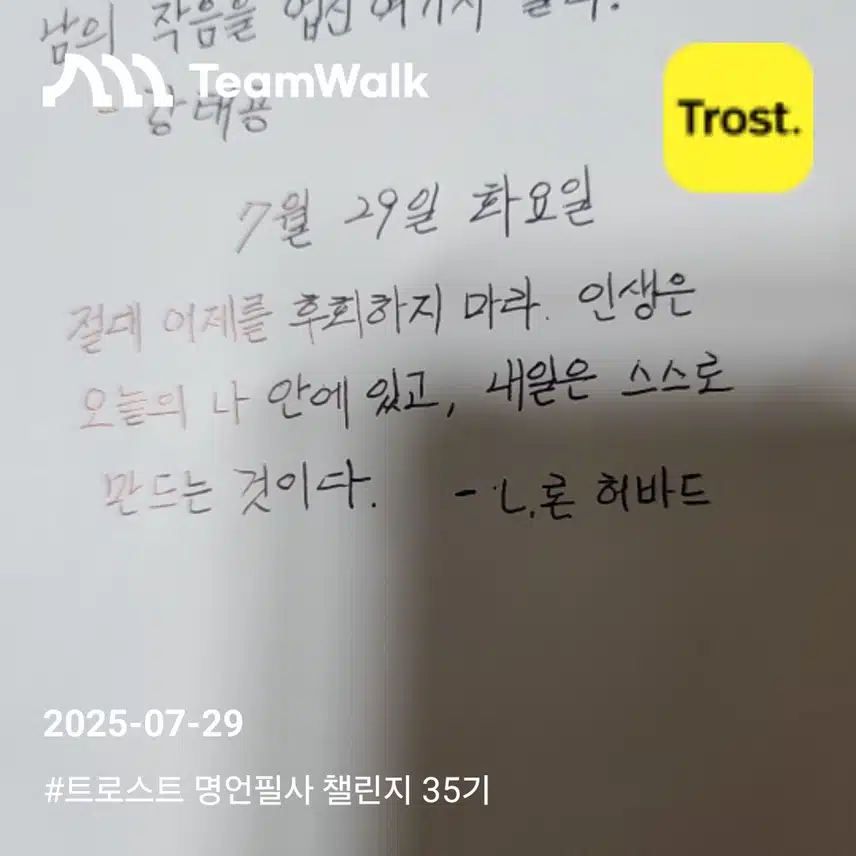 남의 작음을 업신여기지 말라.
TeamWalk
- 강태공
Trost.
7월 29일 화요일
절대 어제를 후회하지 마라. 인생은
오늘의 나 안에 있고, 내일은 스스로
만드는 것이다. - L.론 허바드
2025-07-29
#트로스트 명언필사 챌린지 35기